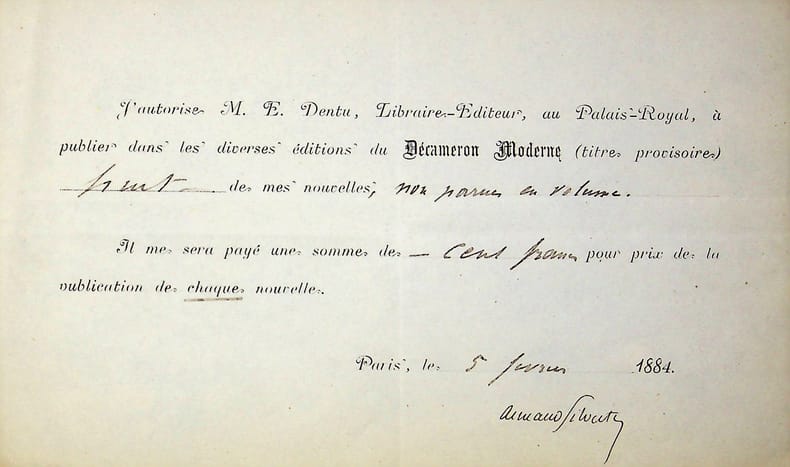 J'autorise M. E. Dentu, Libraire-Editeur, au Palais-Royal, à
publier dans les diverses éditions du Décameron Moderne (titre provisoire)
de mes nouvelles, non parues en volume.
Il me sera payé une somme de — cent francs pour prix de la
publication de chaque nouvelle.
Paris, le 5 février 1884.
Armand Silvestre